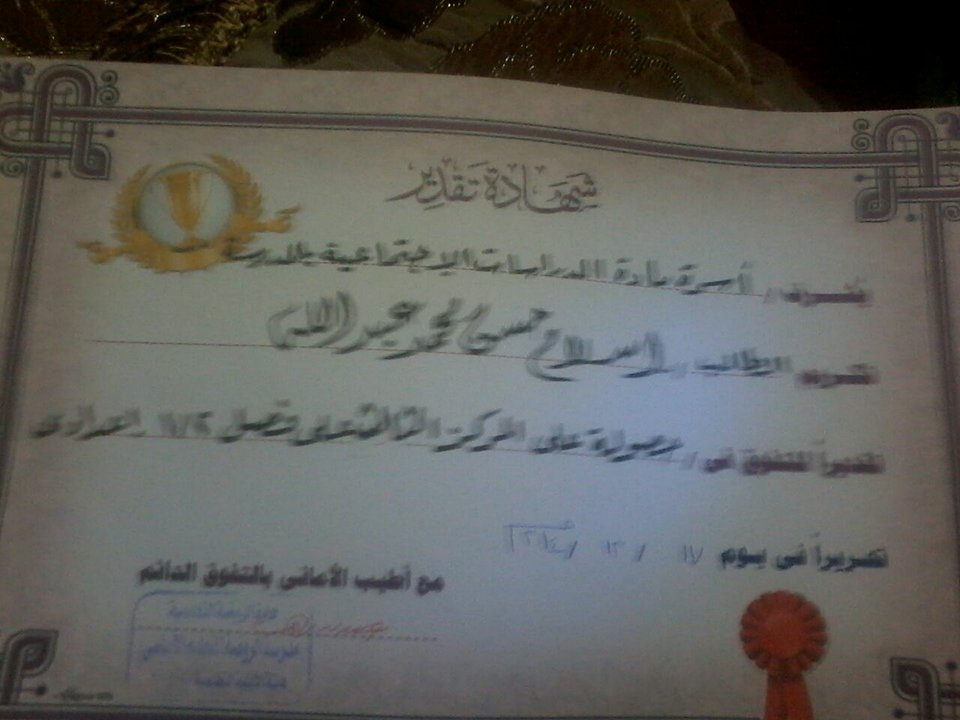 شَهَادَة تَقدِير
تتشرف / أسرة مادة الدراسات الاجتماعية بالمدرسة
بتكريم الطالب / إسلام حسن محمد عبد الله
تقديراً للتفوق فى / حصوله على المركز الثالث على فصل ١/٢ إعدادى
تحريراً فى يوم ١٧ / ١٢ /
مع أطيب الأمانى بالتفوق الدائم